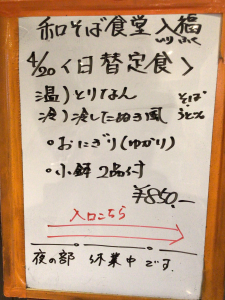 和そば食堂 入福
いりふく
4/20 〈日替定食〉
温)とりなん そば
冷)冷したぬき風 うどん
・おにぎり(ゆかり)
・小鉢2品付
¥850.—
入口こちら
夜の部 休業中です。